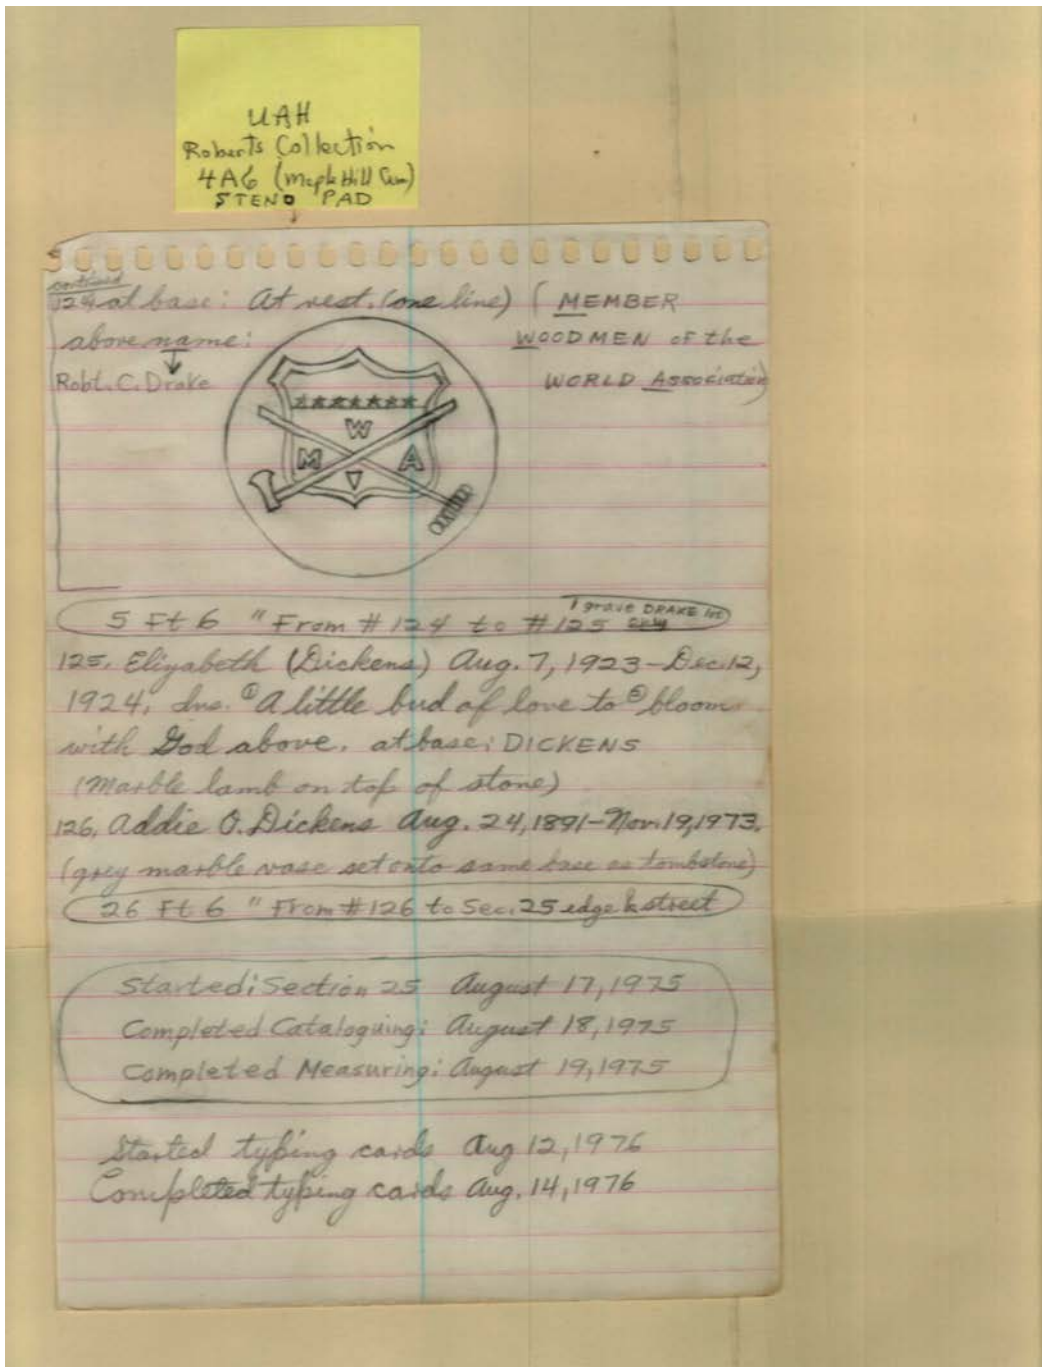 UAH
Roberts Collection
4A6 (Maple Hill Cem)
STENO PAD
continued
124 at base: At rest. (one line) (MEMBER
above name: WOODMEN of the
Robt. C. Drake WORLD Association)
W
M A
5 Ft 6 " From #124 to #125
1 grave DRAKE lot
125. Elizabeth (Dickens) Aug. 7, 1923–Dec. 12,
1924. Ins. ① A little bud of love to ② bloom
with God above. at base: DICKENS
(Marble lamb on top of stone)
126. Addie O. Dickens Aug. 24, 1891–Nov. 19, 1973.
(grey marble vase set onto same base as tombstone)
26 Ft 6 " From #126 to Sec. 25 edge & street
Started: Section 25 August 17, 1975
Completed Cataloguing: August 18, 1975
Completed Measuring: August 19, 1975
Started typing cards Aug 12, 1976
Completed typing cards Aug. 14, 1976